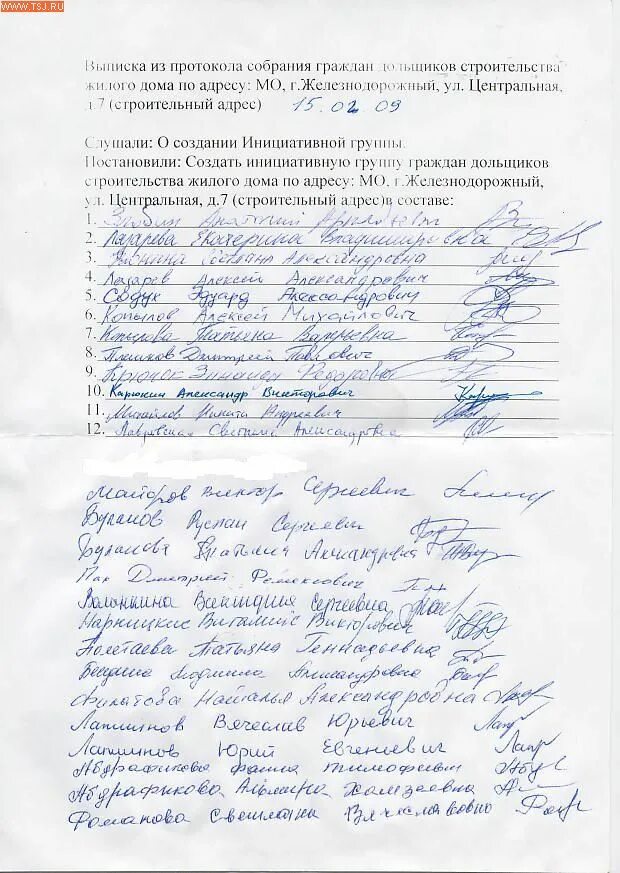 www.TSJ.RU
Выписка из протокола собрания граждан дольщиков строительства
жилого дома по адресу: МО, г.Железнодорожный, ул. Центральная,
д.7 (строительный адрес) 15.02.09
Слушали: О создании Инициативной группы.
Постановили: Создать инициативную группу граждан дольщиков
строительства жилого дома по адресу: МО, г.Железнодорожный,
ул. Центральная, д.7 (строительный адрес)в составе:
1. Злобин Анатолий
2. Лазарева Екатерина Владимировна
3. Александровна
4. Лазарев Алексей Александрович
5. Содух Эдуард Александрович
6. Копылов Алексей Михайлович
7. Копылова Татьяна Валерьевна
8. Плешков Дмитрий Павлович
9. Зинаида Федоровна
10. Карюкин Александр Викторович
11. Михайлов Никита Андреевич
12. Лавровская Светлана Александровна
Майоров Виктор Сергеевич
Буланов Руслан Сергеевич
Буланова Татьяна Александровна
Пак Дмитрий
Волонкина Виктория Сергеевна
Нарницкис Виталис Викторович
Полетаева Татьяна Геннадьевна
Людмила Александровна
Филатова Наталья Александровна
Лапшинов Вячеслав Юрьевич
Лапшинов Юрий Евгеньевич
Абдрафикова Тимофеевич
Абдрафикова Альбина Хамзеевна
Фоманова Светлана Вячеславовна